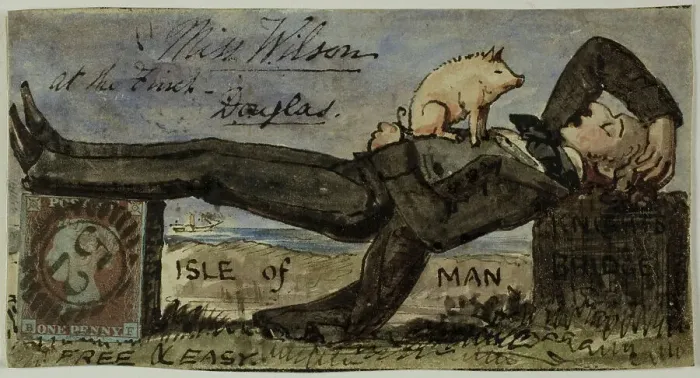 Miss Wilson
at the Finch -
Douglas.
POST
ONE PENNY
B F
ISLE of MAN
KNIGHTS
BRIDGE
FREE & EASY.